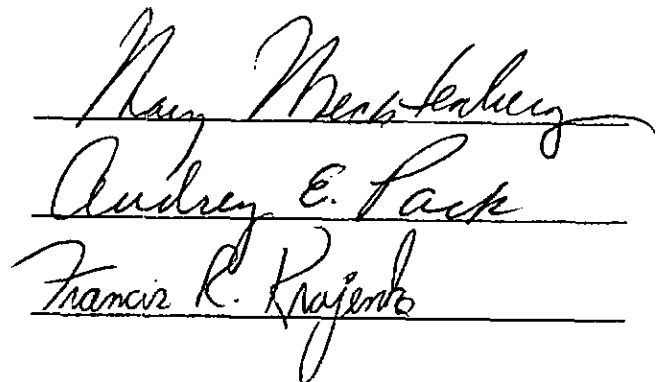 Mary Mechtenberg
Audrey E. Pack
Francis R. Krajenko